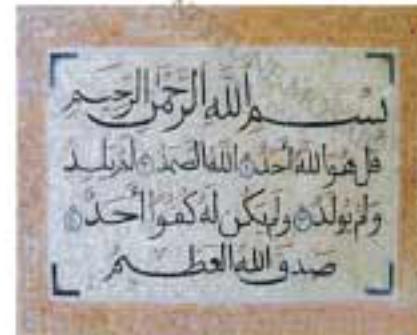 بسم الله الرحمن الرحيم
قل هو الله أحد الله الصمد لم يلد
ولم يولد ولم يكن له كفوا أحد
صدق الله العظيم